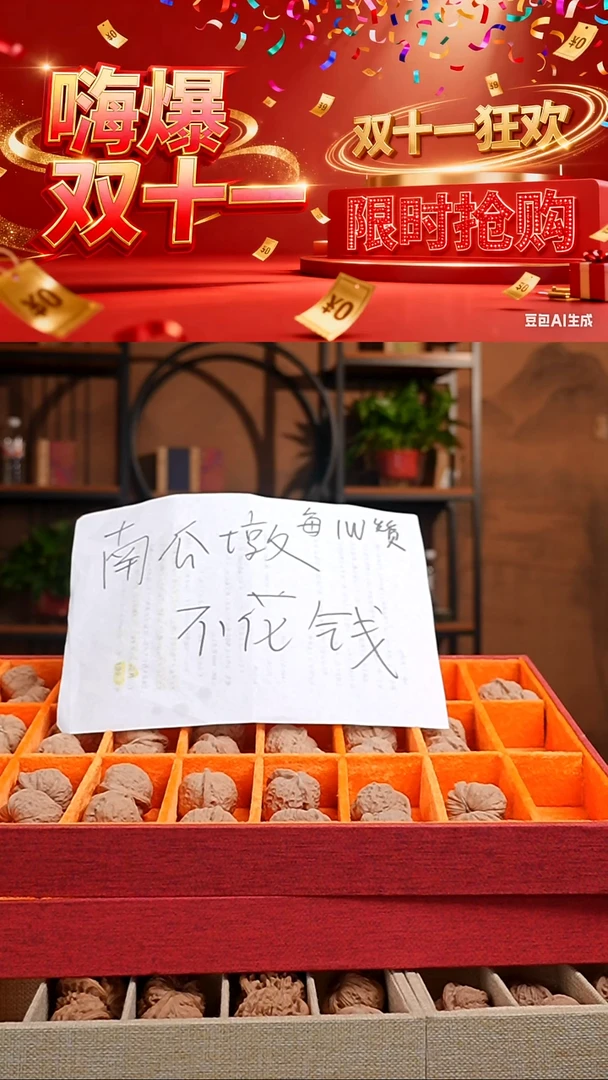 嗨爆
双十一
双十一狂欢
限时抢购
¥0
¥0
豆包AI生成
南瓜墩 每1W赞
不花钱